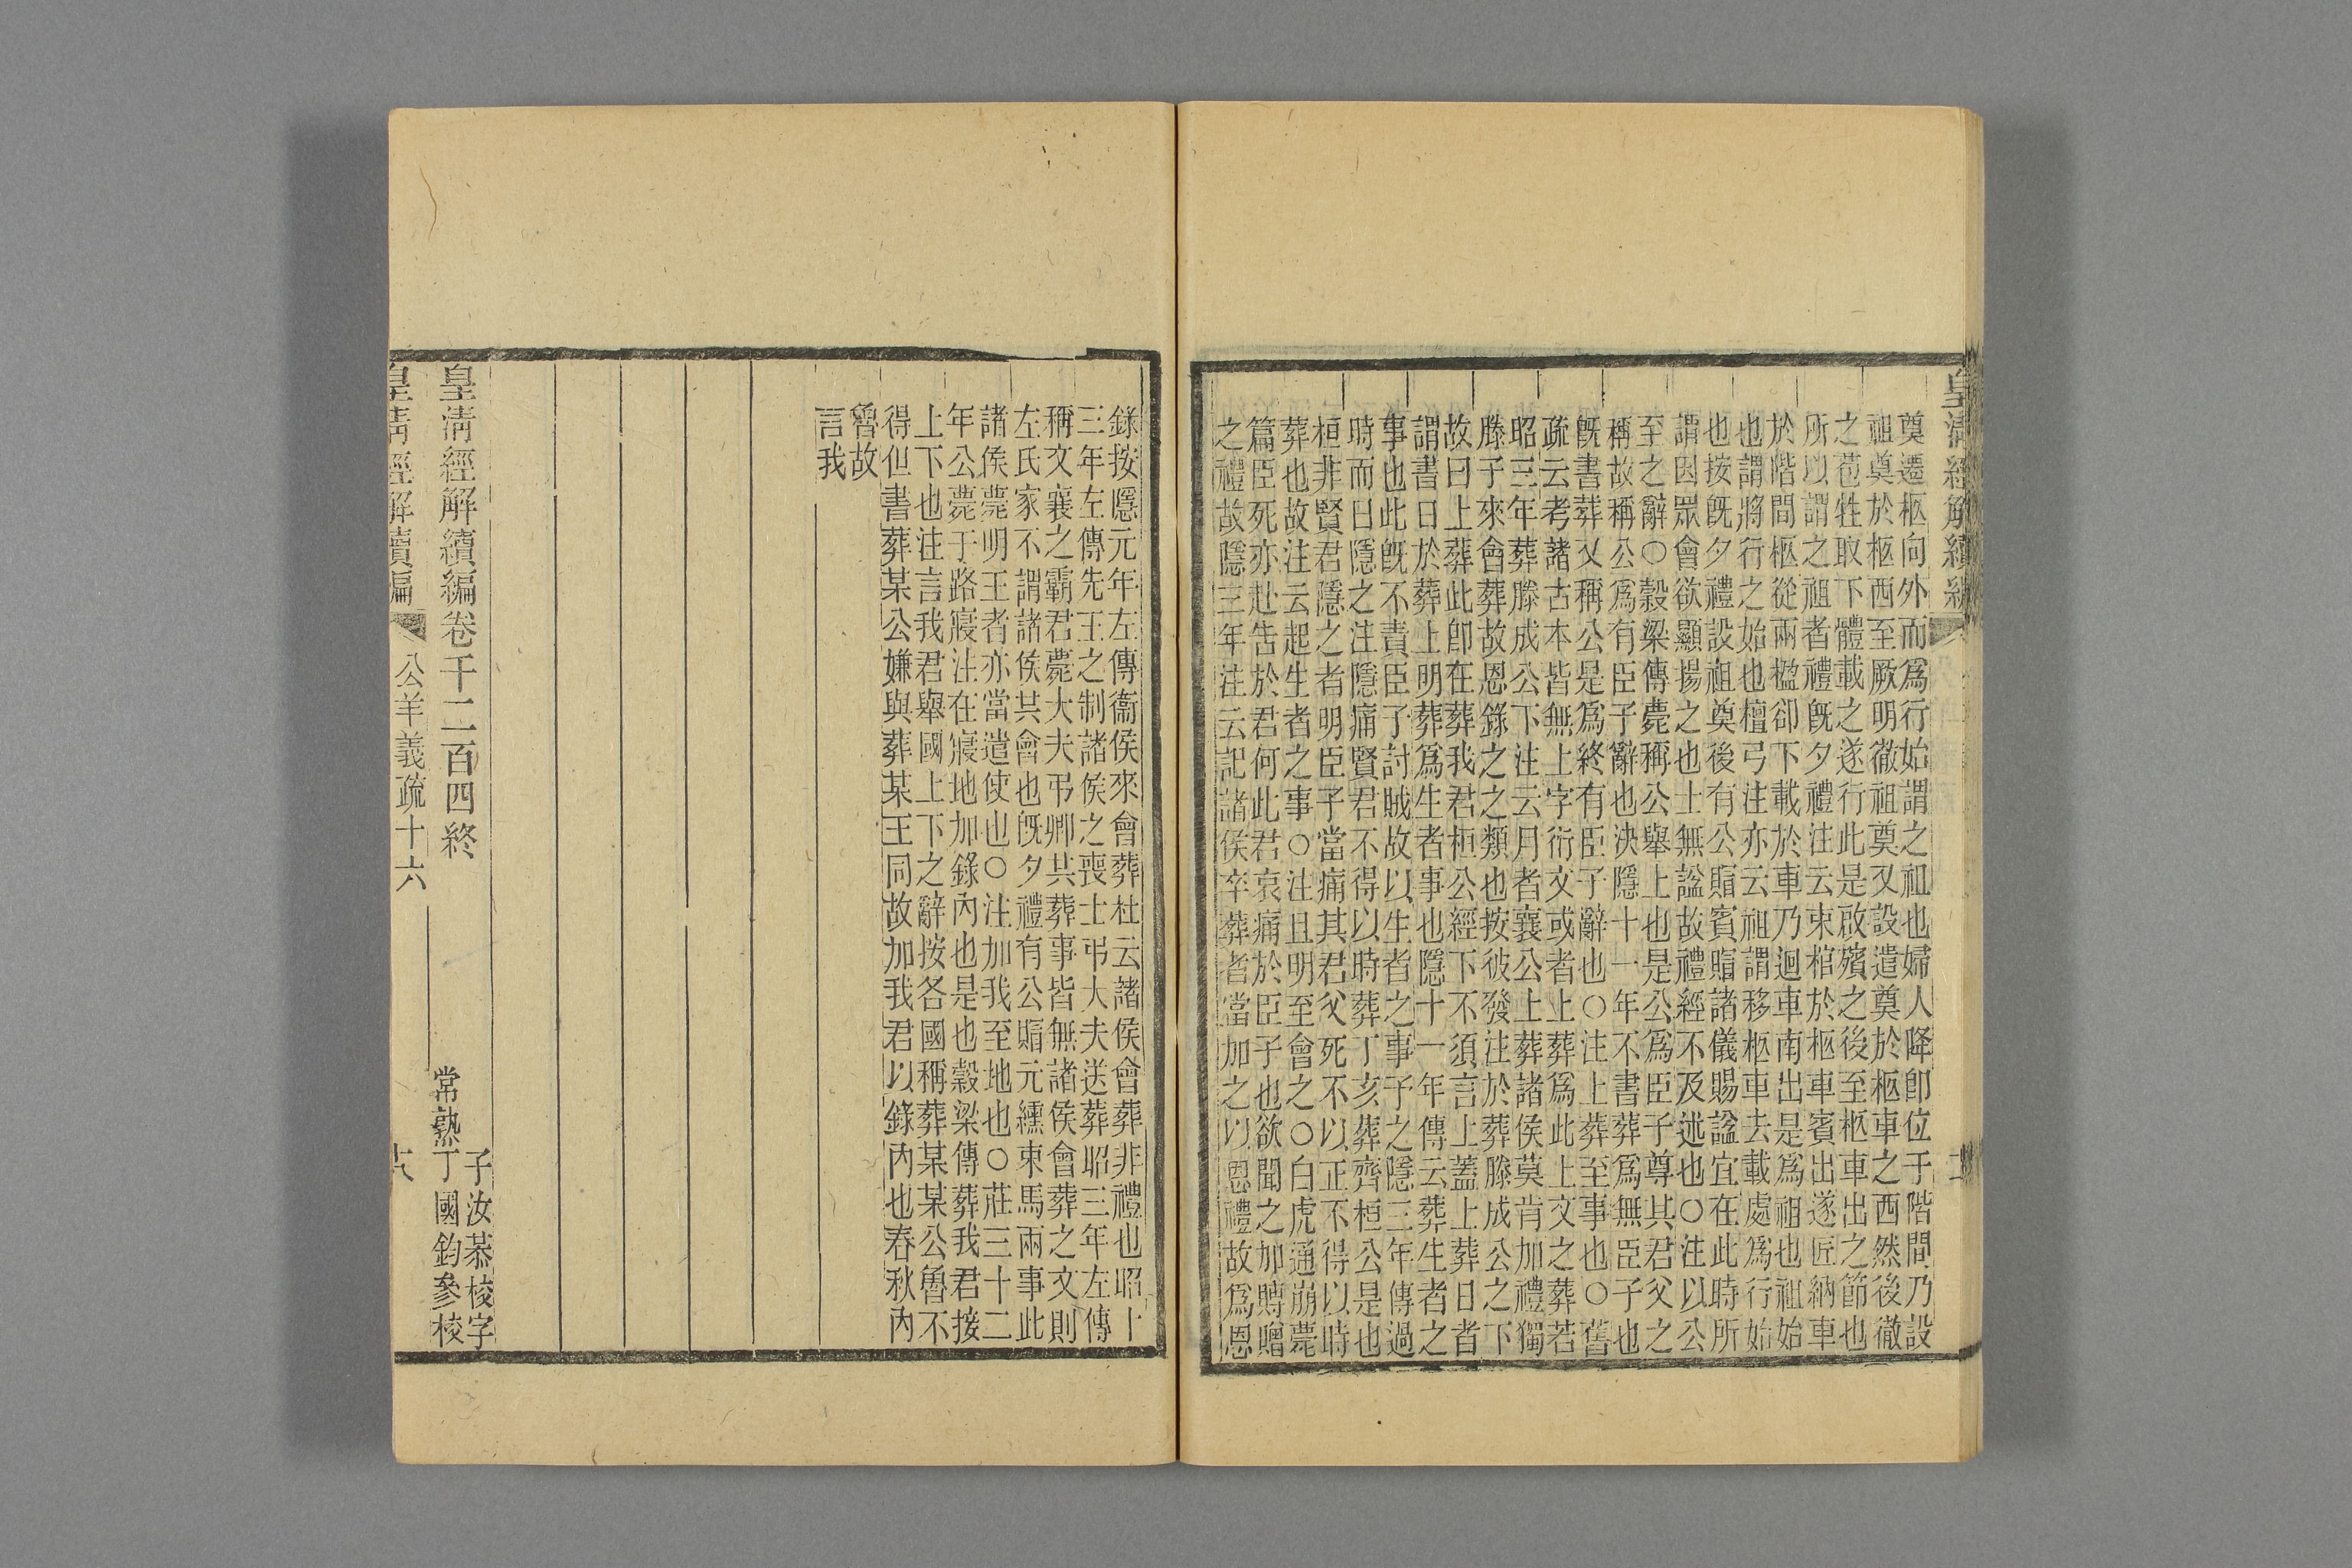 皇清經解續編
奠遷柩向外而爲行始謂之祖也婦人降卽位于階間乃設
祖奠於柩西至厥明徹祖奠又設遣奠於柩車之西然後徹
之苞牲取下體載之遂行此是啟殯之後至柩車出之節也
所以謂之祖者禮旣夕禮注云束棺於柩車賓出遂匠納車
於階間柩從兩楹卻下載於車乃迴車南出是爲祖也祖始
也謂將行之始也檀弓注亦云祖謂移柩車去載處爲行始
也按旣夕禮設祖奠後有公賵賓賵諸儀賜諡宜在此時所
謂因眾會欲顯揚之也士無諡故禮經不及述也○注以公
至之辭○穀梁傳薨稱公舉上也是公爲臣子尊其君父之
稱故稱公爲有臣子辭也決隱十一年不書葬爲無臣子也
旣書葬又稱公是爲終有臣子辭也○注上葬至事也○舊
疏云考諸古本皆無上字衍文或者上葬爲此上文之葬若
昭三年葬滕成公下注云月者襄公上葬諸侯莫肯加禮獨
滕子來會葬故恩錄之之類也按彼發注於葬滕成公之下
故曰上葬此卽在葬我君桓公經下不須言上蓋上葬日者
謂書日於葬上明葬爲生者事也隱十一年傳云葬生者之
事也此旣不責臣子討賊故以生者之事予之隱三年傳過
時而日隱之注隱痛賢君不得以時葬丁亥葬齊桓公是也
桓非賢君隱之者明臣子當痛其君父死不以正不得以時
葬也故注云起生者之事○注且明至會之○白虎通崩薨
篇臣死亦赴告於君何此君哀痛於臣子也欲聞之加賻贈
之禮故隱三年注云記諸侯卒葬者當加之以恩禮故爲恩
錄按隱元年左傳衞侯來會葬杜云諸侯會葬非禮也昭十
三年左傳先王之制諸侯之喪士弔大夫送葬昭三年左傳
稱文襄之霸君薨大夫弔卿共葬事皆無諸侯會葬之文則
左氏家不謂諸侯共會也旣夕禮有公賵元纁束馬兩事此
諸侯薨明王者亦當遣使也○注加我至地也○莊三十二
年公薨于路寢注在寢地加錄內也是也穀梁傳葬我君接
上下也注言我君舉國上下之辭按各國稱葬某某公魯不
得但書葬某公嫌與葬某王同故加我君以錄內也春秋內
魯故
言我
子汝恭校字
常熟丁國鈞參校
皇清經解續編卷千二百四終
皇清經解續編
公羊義疏十六